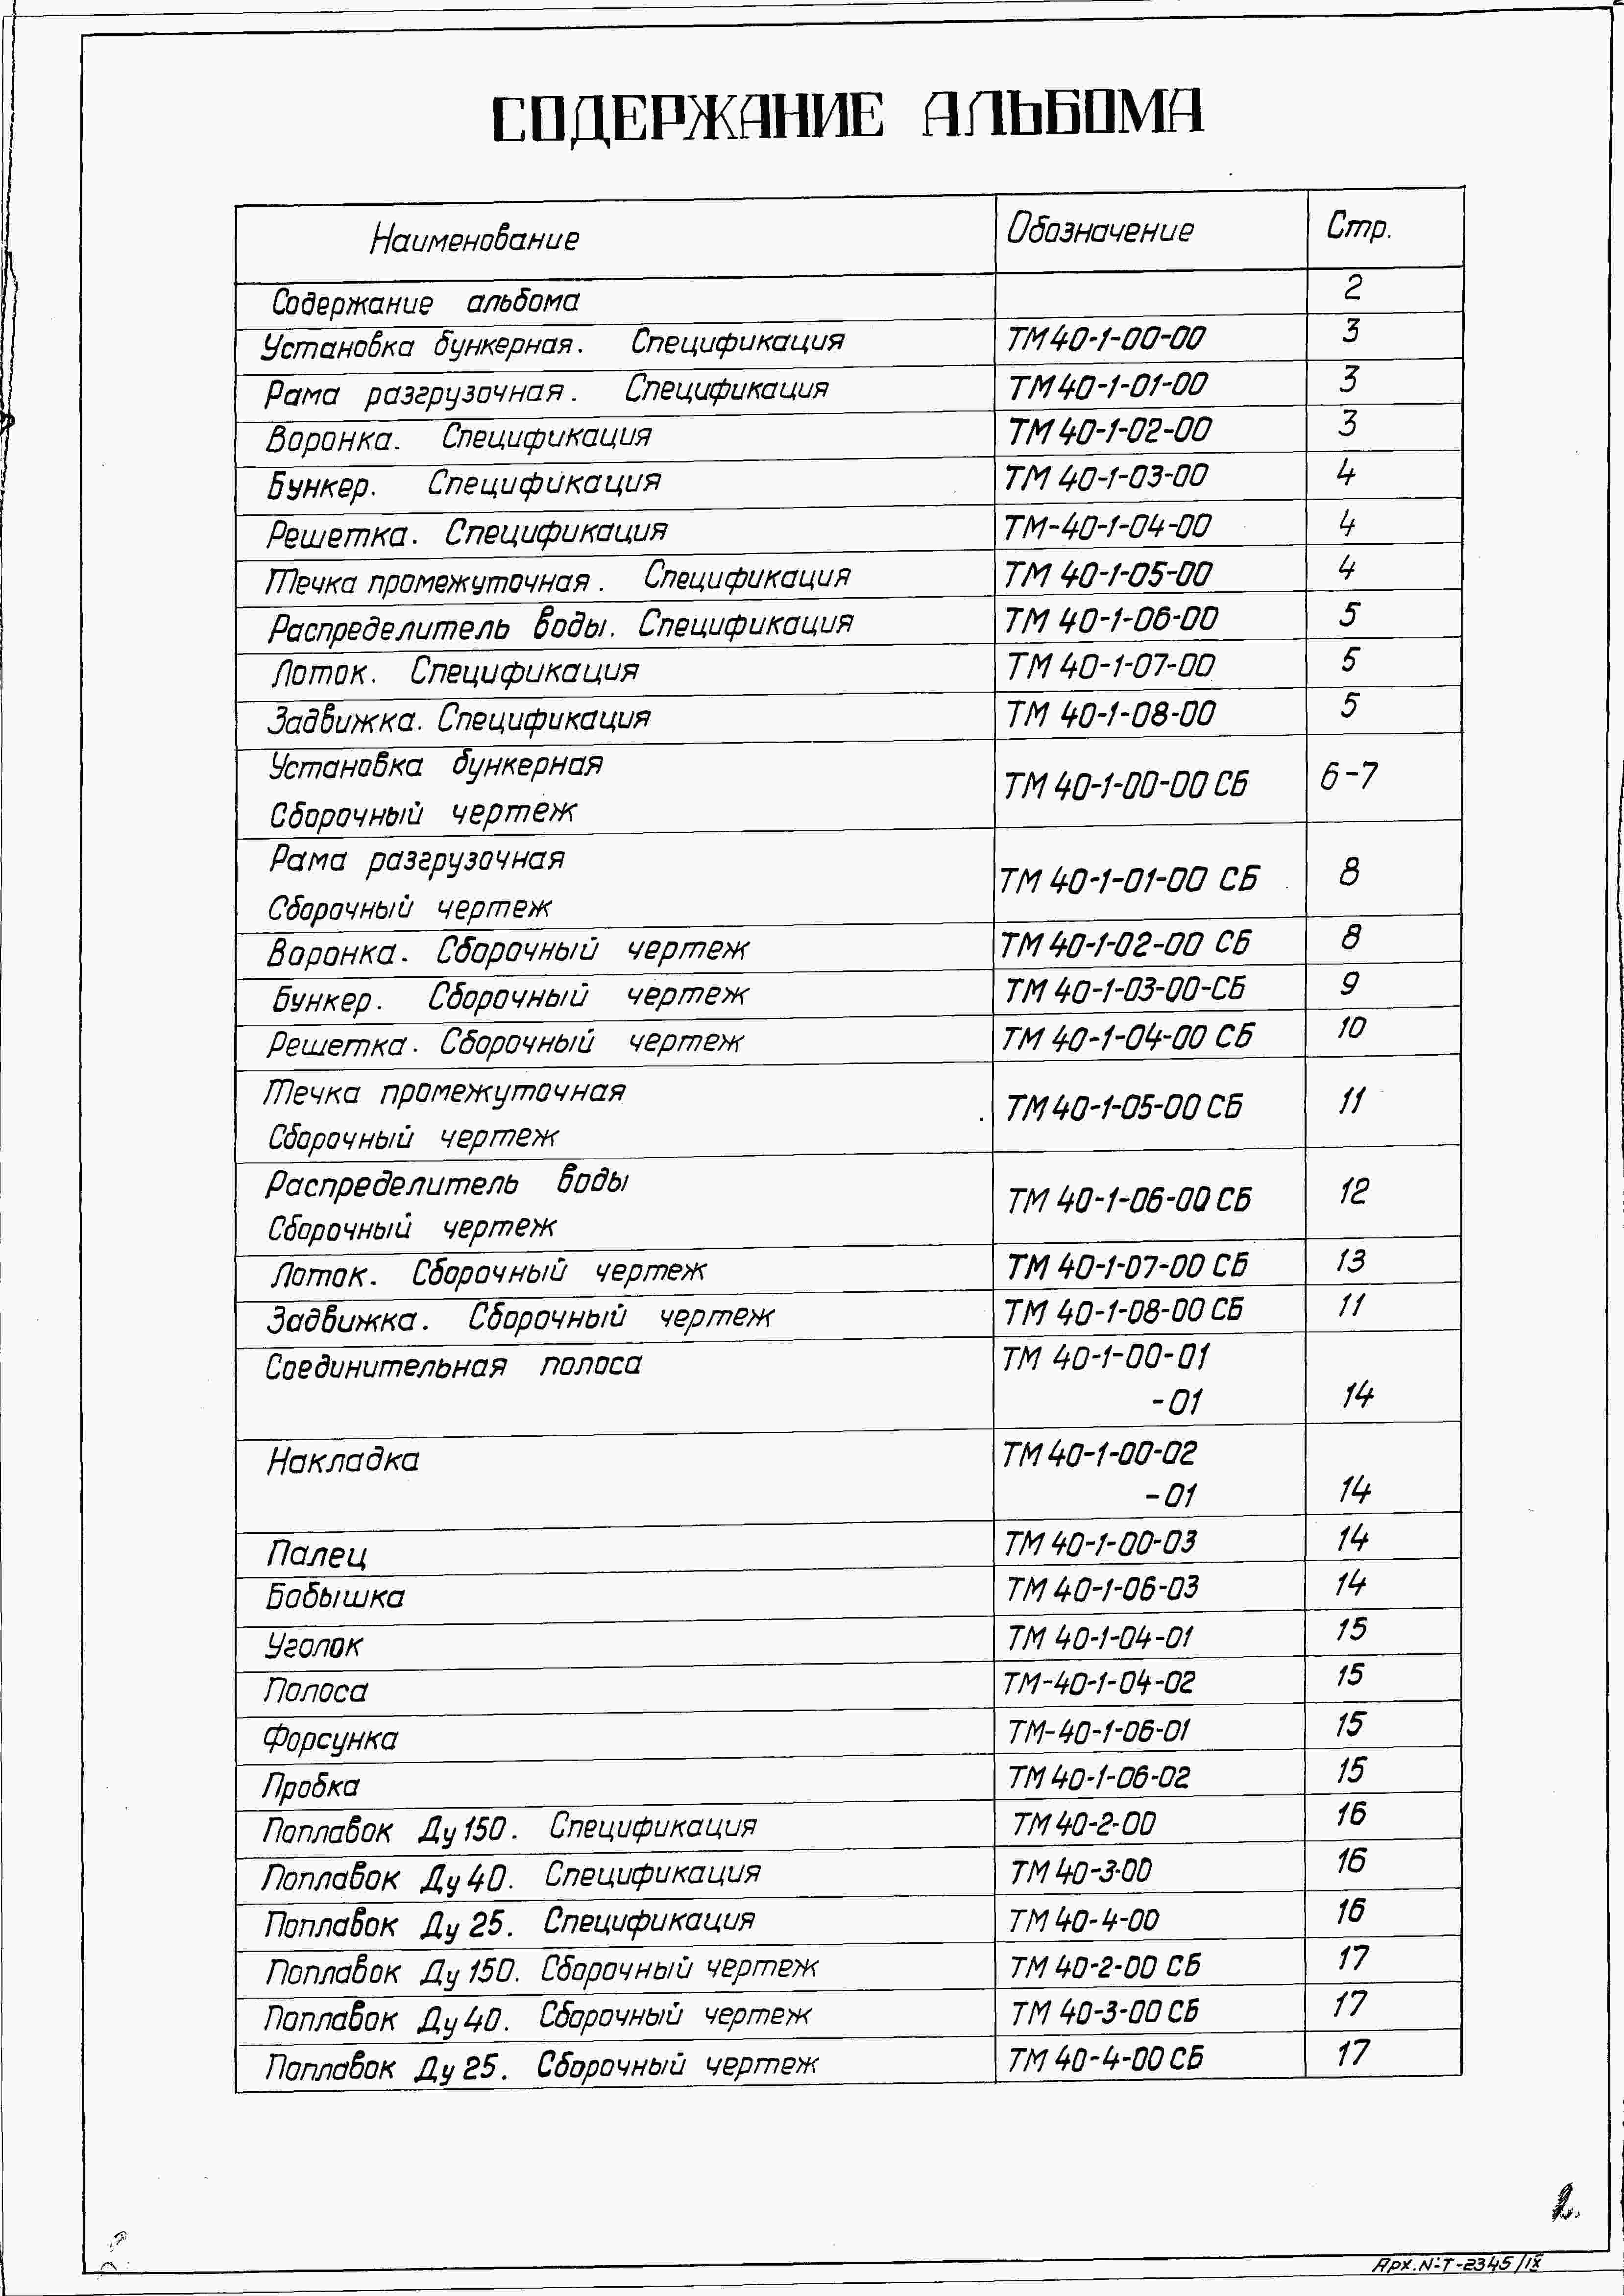 СОДЕРЖАНИЕ АЛЬБОМА
Наименование Обозначение Стр.
Содержание альбома 2
Установка бункерная. Спецификация ТМ40-1-00-00 3
Рама разгрузочная. Спецификация ТМ40-1-01-00 3
Воронка. Спецификация ТМ 40-1-02-00 3
Бункер. Спецификация ТМ 40-1-03-00 4
Решетка. Спецификация ТМ-40-1-04-00 4
Течка промежуточная. Спецификация ТМ 40-1-05-00 4
Распределитель воды. Спецификация ТМ 40-1-06-00 5
Лоток. Спецификация ТМ 40-1-07-00 5
Задвижка. Спецификация ТМ 40-1-08-00 5
Установка бункерная
Сборочный чертеж ТМ 40-1-00-00 СБ 6-7
Рама разгрузочная
Сборочный чертеж ТМ 40-1-01-00 СБ 8
Воронка. Сборочный чертеж ТМ 40-1-02-00 СБ 8
Бункер. Сборочный чертеж ТМ 40-1-03-00-СБ 9
Решетка. Сборочный чертеж ТМ 40-1-04-00 СБ 10
Течка промежуточная
Сборочный чертеж ТМ40-1-05-00 СБ 11
Распределитель воды
Сборочный чертеж ТМ 40-1-06-00 СБ 12
Лоток. Сборочный чертеж ТМ 40-1-07-00 СБ 13
Задвижка. Сборочный чертеж ТМ 40-1-08-00 СБ 11
Соединительная полоса ТМ 40-1-00-01
-01 14
Накладка ТМ 40-1-00-02
-01 14
Палец ТМ 40-1-00-03 14
Бобышка ТМ 40-1-06-03 14
Уголок ТМ 40-1-04-01 15
Полоса ТМ-40-1-04-02 15
Форсунка ТМ-40-1-06-01 15
Пробка ТМ 40-1-06-02 15
Поплавок Ду 150. Спецификация ТМ 40-2-00 16
Поплавок Ду 40. Спецификация ТМ 40-3-00 16
Поплавок Ду 25. Спецификация ТМ 40-4-00 16
Поплавок Ду 150. Сборочный чертеж ТМ 40-2-00 СБ 17
Поплавок Ду 40. Сборочный чертеж ТМ 40-3-00 СБ 17
Поплавок Ду 25. Сборочный чертеж ТМ 40-4-00 СБ 17
2.
Арх.N-Т-2345/IX